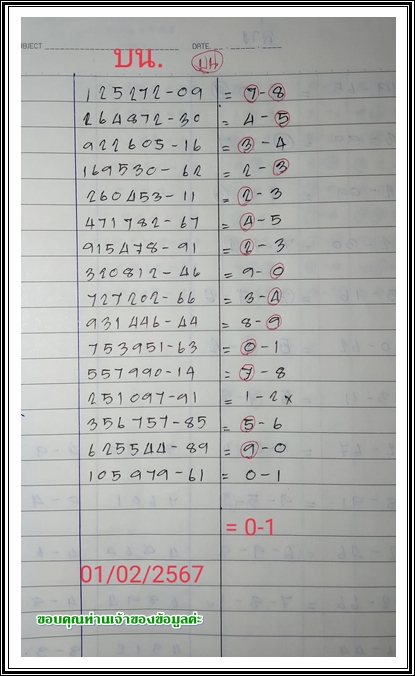 SUBJECT DATE
บน. บน
125272-09 = 7-8
264872-30 = 4-5
922605-16 = 3-4
169530-62 = 2-3
260453-11 = 2-3
471782-67 = 4-5
915478-91 = 2-3
320812-46 = 9-0
727202-66 = 3-4
931446-44 = 8-9
753951-63 = 0-1
557990-14 = 7-8
251097-91 = 1-2x
356757-85 = 5-6
625544-89 = 9-0
105979-61 = 0-1
= 0-1
01/02/2567
ขอบคุณท่านเจ้าของข้อมูลค่ะ